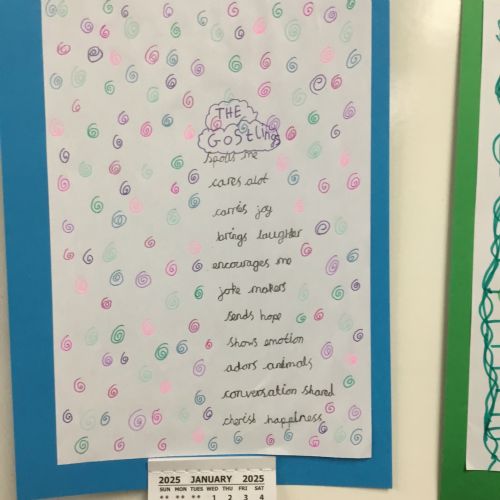 THE
Gostlings
spoils me
cares alot
carries joy
brings laughter
encourages me
joke makers
sends hope
shows emotion
adors animals
conversation shared
cherish happiness
2025 JANUARY 2025
SUN MON TUES WED THU FRI SAT
** ** ** 1 2 3 4